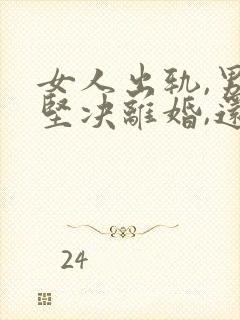 女人出轨,男
坚决离婚,还
24